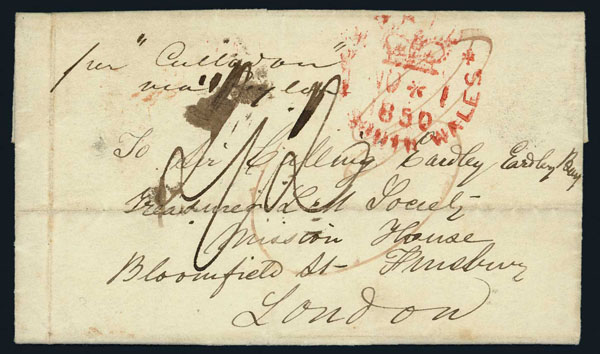 per "Cullodon"
via Ceylon
NO * 1
850
SOUTH WALES *
To Sir Culling Eardley Eardley Bart
Treasurer L M Society
Mission House
Bloomfield St Finsbury
London